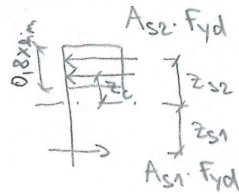 As2 · Fyd
0,8xlim
zc
zs2
zs1
As1 · Fyd